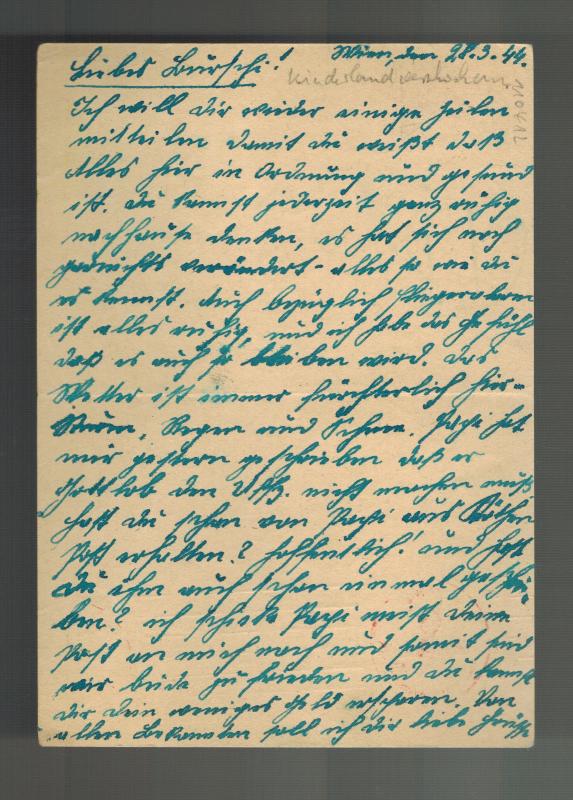 Wien, den 28.3.44.
Liebes Burschi!
Kinderlandverschickung
Ich will dir wieder einige Zeilen
mitteilen damit du weißt daß
Alles hier in Ordnung und gesund
ist. du kannst jederzeit ganz ruhig
nachhause denken, es hat sich noch
garnichts verändert - alles so wie du
es kennst. Auch bezüglich Fliegeralarm
ist alles ruhig, und ich habe das Gefühl
daß es auch so bleiben wird. Das
Wetter ist immer fürchterlich hier -
Sturm, Regen und Schnee. Papi hat
mir gestern geschrieben daß er
Gottlob den nicht machen muß
hast du schon von Papi aus
Post erhalten? hoffentlich! und hast
du ihm auch schon einmal geschrie-
ben? ich schicke Papi meist deine
Post an mich nach und somit sind
wir beide zufrieden und du kannst
dir dein weniges Geld ersparen. Von
allen Bekannten soll ich dir liebe Grüße